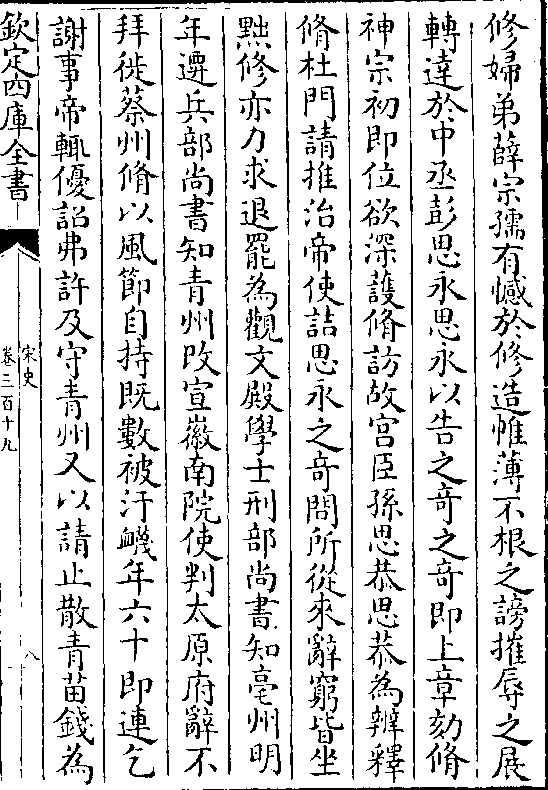 修婦弟薛宗孺有憾於修造帷薄不根之謗摧辱之展
轉達於中丞彭思永思永以告之奇之奇即上章劾脩
神宗初即位欲深護脩訪故宫臣孫思恭思恭為辨釋
脩杜門請推治帝使詰思永之竒問所從來辭窮皆坐
黜修亦力求退罷為觀文殿學士刑部尚書知亳州明
年遷兵部尚書知青州改宣徽南院使判太原府辭不
拜徙蔡州脩以風節自持既數被汙衊年六十即連乞
謝事帝輒優詔弗許及守青州又以請止散青苗錢為
欽定四庫全書
宋史
卷三百十九
八